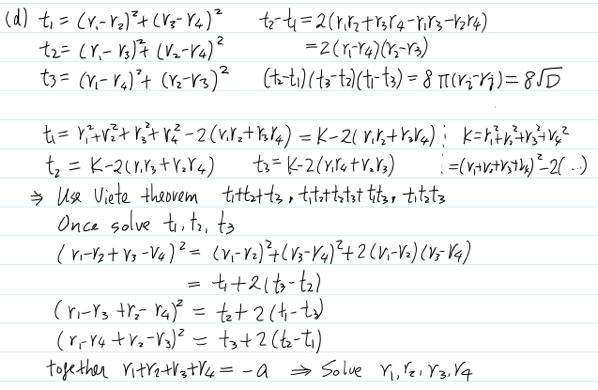 (d) t₁ = (r₁-r₂)²+(r₃-r₄)² t₂-t₁ = 2(r₁r₂+r₃r₄-r₁r₃-r₂r₄)
t₂ = (r₁-r₃)²+(r₂-r₄)² = 2(r₁-r₄)(r₂-r₃)
t₃ = (r₁-r₄)²+(r₂-r₃)² (t₂-t₁)(t₃-t₂)(t₁-t₃) = 8 π(rᵢ-rⱼ) = 8√D
t₁ = r₁²+r₂²+r₃²+r₄²-2(r₁r₂+r₃r₄) = K-2(r₁r₂+r₃r₄) ; K=r₁²+r₂²+r₃²+r₄²
t₂ = K-2(r₁r₃+r₂r₄) t₃ = K-2(r₁r₄+r₂r₃) =(r₁+r₂+r₃+r₄)²-2(...)
⇒ Use Viete theorem t₁+t₂+t₃, t₁t₂+t₂t₃+t₁t₃, t₁t₂t₃
Once solve t₁, t₂, t₃
(r₁-r₂+r₃-r₄)² = (r₁-r₂)²+(r₃-r₄)²+2(r₁-r₂)(r₃-r₄)
= t₁+2(t₃-t₂)
(r₁-r₃+r₂-r₄)² = t₂+2(t₁-t₃)
(r₁-r₄+r₂-r₃)² = t₃+2(t₂-t₁)
together r₁+r₂+r₃+r₄ = -a ⇒ Solve r₁, r₂, r₃, r₄